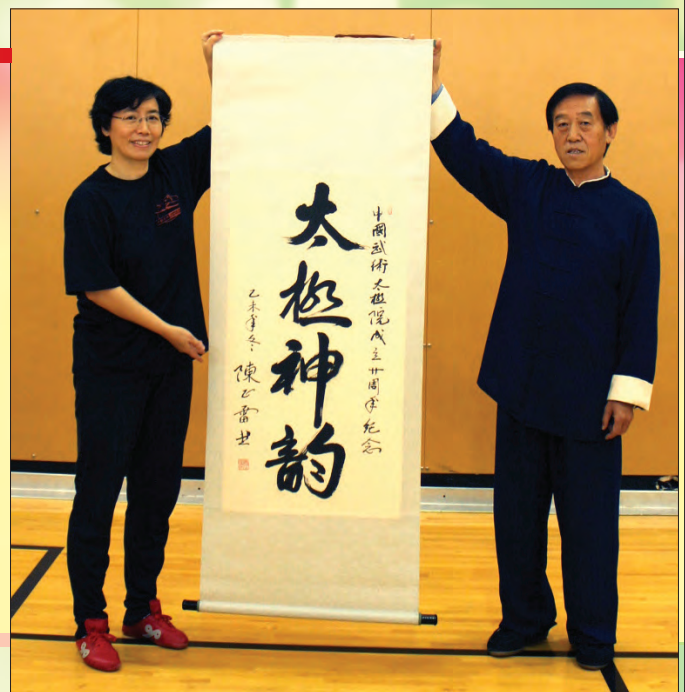 中國武術太極院成立廿周年纪念
太極神韵
乙未年冬 陳正雷书